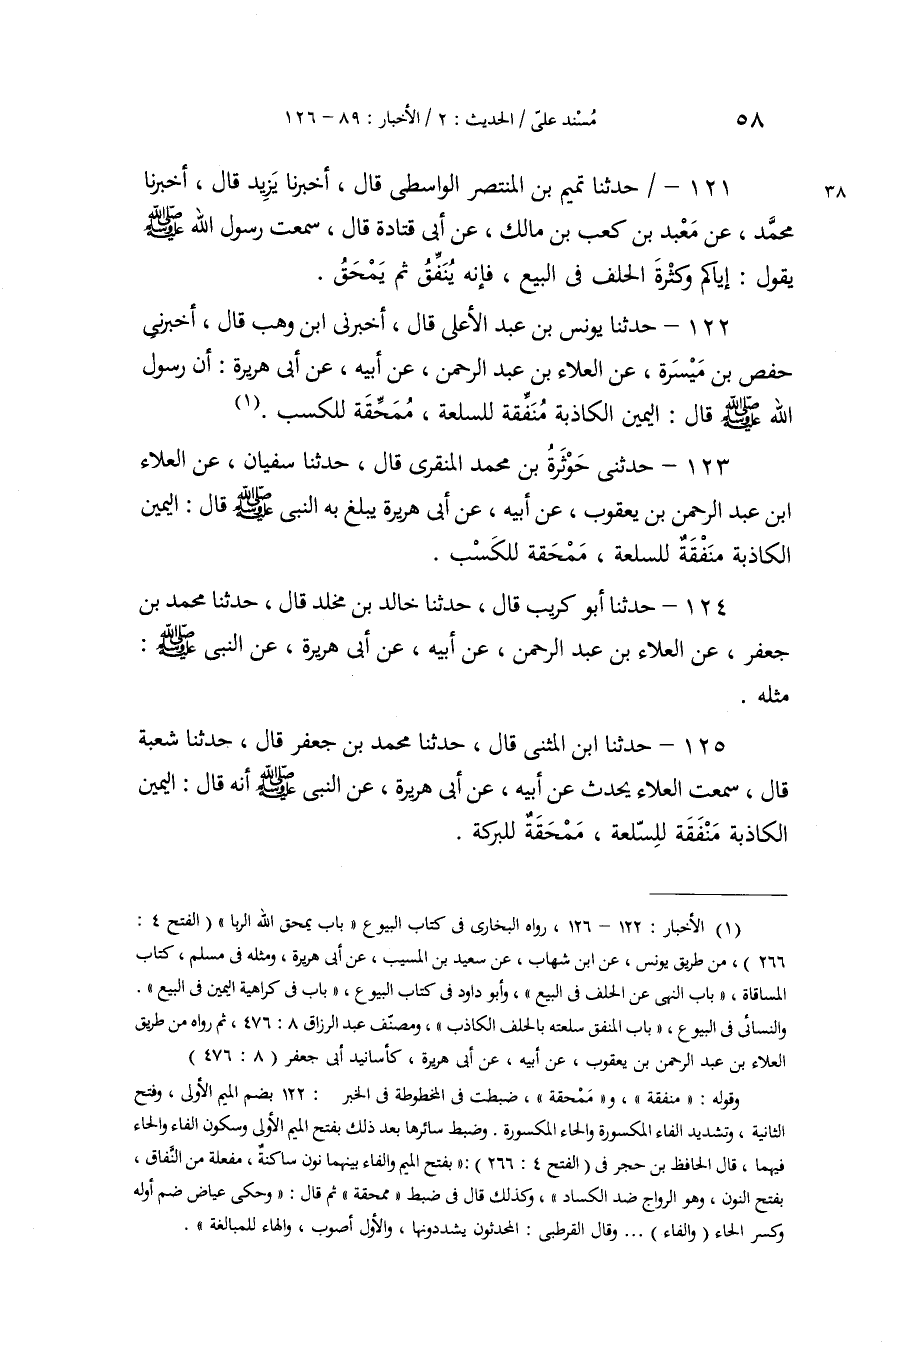 ٥٨ مُسْند علىّ / الحديث : ٢ / الأخبار : ٨٩ – ١٢٦
٣٨ ١٢١ – / حدثنا تميم بن المنتصر الواسطى قال ، أخبرنا يَزِيد قال ، أخبرنا
محمَّد ، عن مَعْبد بن كعب بن مالك ، عن أبى قتادة قال ، سمعت رسول الله ﷺ
يقول : إياكم وكثْرةَ الحلف فى البيع ، فإنه يُنَفِّقُ ثم يَمْحَقُ .
١٢٢ – حدثنا يونس بن عبد الأعلى قال ، أخبرنى ابن وهب قال ، أخبرني
حفص بن مَيْسَرة ، عن العلاء بن عبد الرحمن ، عن أبيه ، عن أبى هريرة : أن رسول
الله ﷺ قال : اليمين الكاذبة مُنَفِّقة للسلعة ، مُمَحِّقَة للكسب .(١)
١٢٣ – حدثنى حَوْثَرةُ بن محمد المنقرى قال ، حدثنا سفيان ، عن العلاء
ابن عبد الرحمن بن يعقوب ، عن أبيه ، عن أبى هريرة يبلغ به النبى ﷺ قال : اليمين
الكاذبة منَفْقَةٌ للسلعة ، مَمْحَقة للكَسْب .
١٢٤ – حدثنا أبو كريب قال ، حدثنا خالد بن مخلد قال ، حدثنا محمد بن
جعفر ، عن العلاء بن عبد الرحمن ، عن أبيه ، عن أبى هريرة ، عن النبى ﷺ :
مثله .
١٢٥ – حدثنا ابن المثنى قال ، حدثنا محمد بن جعفر قال ، حدثنا شعبة
قال ، سمعت العلاء يحدث عن أبيه ، عن أبى هريرة ، عن النبى ﷺ أنه قال : اليمين
الكاذبة مَنْفَقَة لِلسّلعة ، مَمْحَقَةٌ للبركة .
(١) الأخبار : ١٢٢ – ١٢٦ ، رواه البخارى فى كتاب البيوع « باب يمحق الله الربا » ( الفتح ٤ :
٢٦٦ ) ، من طريق يونس ، عن ابن شهاب ، عن سعيد بن المسيب ، عن أبى هريرة ، ومثله فى مسلم ، كتاب
المساقاة ، « باب النهى عن الحلف فى البيع » ، وأبو داود فى كتاب البيوع ، « باب فى كراهية اليمين فى البيع » .
والنسائى فى البيوع ، « باب المنفق سلعته بالحلف الكاذب » ، ومصنّف عبد الرزاق ٨ : ٤٧٦ ، ثم رواه من طريق
العلاء بن عبد الرحمن بن يعقوب ، عن أبيه ، عن أبى هريرة ، كأسانيد أبى جعفر ( ٨ : ٤٧٦ )
وقوله : « منفقة » ، و« مَمْحقة » ، ضبطت فى المخطوطة فى الخبر : ١٢٢ بضم الميم الأولى ، وفتح
الثانية ، وتشديد الفاء المكسورة والحاء المكسورة . وضبط سائرها بعد ذلك بفتح الميم الأولى وسكون الفاء والحاء
فيهما ، قال الحافظ بن حجر فى ( الفتح ٤ : ٢٦٦ ) :« بفتح الميم والفاء بينهما نون ساكنةٌ ، مفعلة من النَّفاق ،
بفتح النون ، وهو الرواج ضد الكساد » ، وكذلك قال فى ضبط « ممحقة » ثم قال : « وحكى عياض ضم أوله
وكسر الحاء ( والفاء ) ... وقال القرطبى : المحدثون يشددونها ، والأول أصوب ، والهاء للمبالغة » .